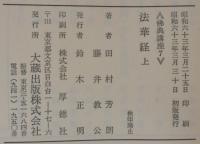 昭和六十三年三月二十五日 印刷
昭和六十三年三月三十日 初版発行
《佛典講座7》
法華経 上
検印廃止
著者 田村芳朗
藤井教公
発行者 鈴木正明
印刷所 株式会社 厚徳社
東京都文京区目白台一-十七-六
発行所 大蔵出版株式会社